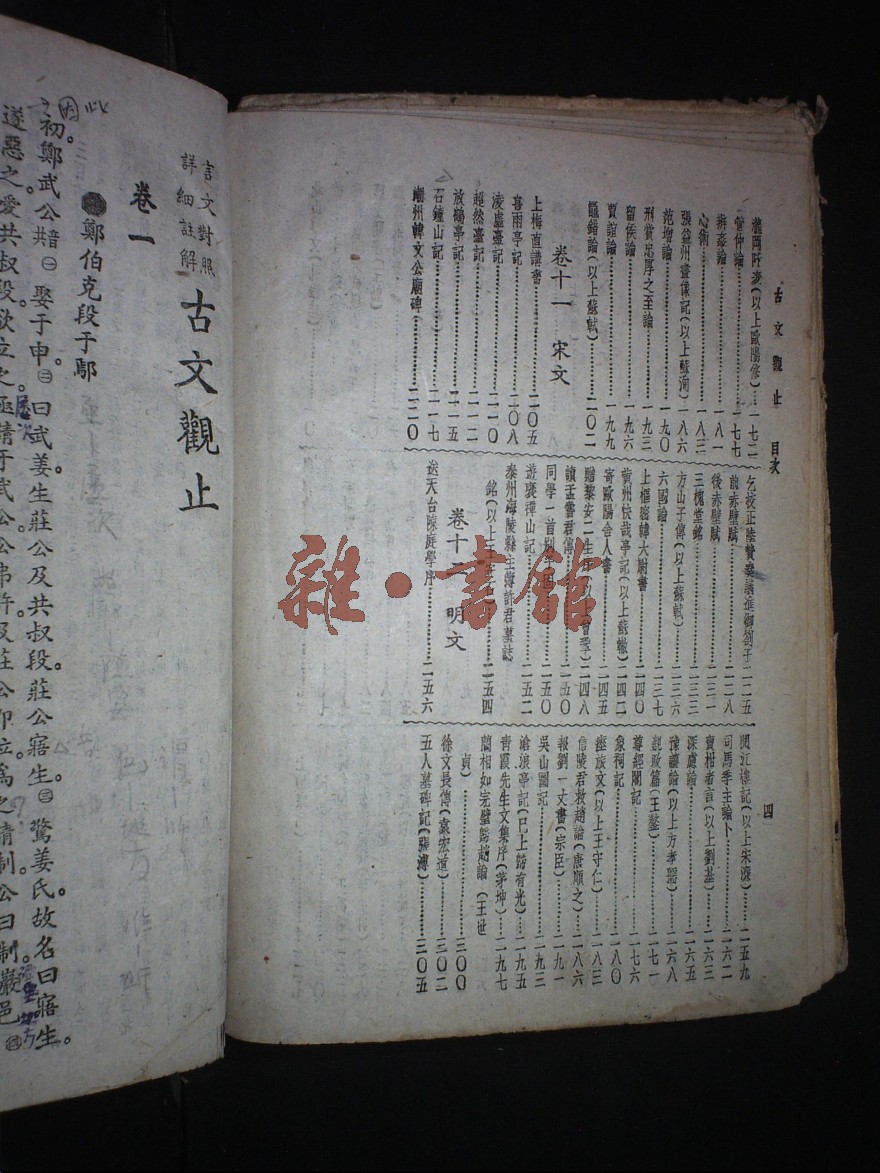 古文觀止 目次
四
瀧岡阡表(以上歐陽修)…一七二
管仲論…一七七
辨姦論…一八一
心術…一八三
張益州畫像記(以上蘇洵)…一八六
范增論…一九〇
刑賞忠厚之至論…一九三
留侯論…一九六
賈誼論…一九九
鼂錯論(以上蘇軾)…二〇二
卷十一 宋文
上梅直講書…二〇五
喜雨亭記…二〇八
凌虛臺記…二一〇
超然臺記…二一二
放鶴亭記…二一五
石鐘山記…二一七
潮州韓文公廟碑…二二〇
乞校正陸贄奏議進御劄子…二二五
前赤壁賦…二二八
後赤壁賦…二三一
三槐堂銘…二三三
方山子傳(以上蘇軾)…二三六
六國論…二三七
上樞密韓太尉書…二四〇
黃州快哉亭記(以上蘇轍)…二四二
寄歐陽舍人書…二四五
贈黎安二生…二四八
讀孟嘗君傳…二五〇
同學一首別子固…二五〇
遊褒禪山記…二五二
泰州海陵縣主簿許君墓誌
銘(以上王…二五四
卷十二 明文
送天台陳庭學序…二五六
閱江樓記(以上宋濂)…二五九
司馬季主論卜…二六二
賣柑者言(以上劉基)…二六三
深慮論…二六五
豫讓論(以上方孝孺)…二六八
親政篇(王鏊)…二七一
尊經閣記…二七六
象祠記…二八〇
瘞旅文(以上王守仁)…二八三
信陵君救趙論(唐順之)…二八六
報劉一丈書(宗臣)…二九一
吳山圖記…二九三
滄浪亭記(已上歸有光)…二九五
青霞先生文集序(茅坤)…二九七
藺相如完璧歸趙論(王世
貞)…三〇〇
徐文長傳(袁宏道)…三〇二
五人墓碑記(張溥)…三〇五
言文對照
詳細註解
古文觀止
卷一
鄭伯克段于鄢
初。鄭武公㊀娶于申㊁曰武姜生莊公及共叔段。莊公寤生。㊂驚姜氏故名曰寤生。
遂惡之。愛共叔段。欲立之。亟請于武公公弗許。及莊公即位。爲之請制。公曰制。巖邑
雜·書館